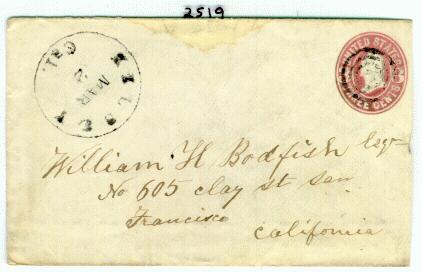 2519
HILSEY CAL.
MAR
2
UNITED STATES
THREE CENTS
William H Bodfish Esqr
No 605 clay st San
Francisco
California